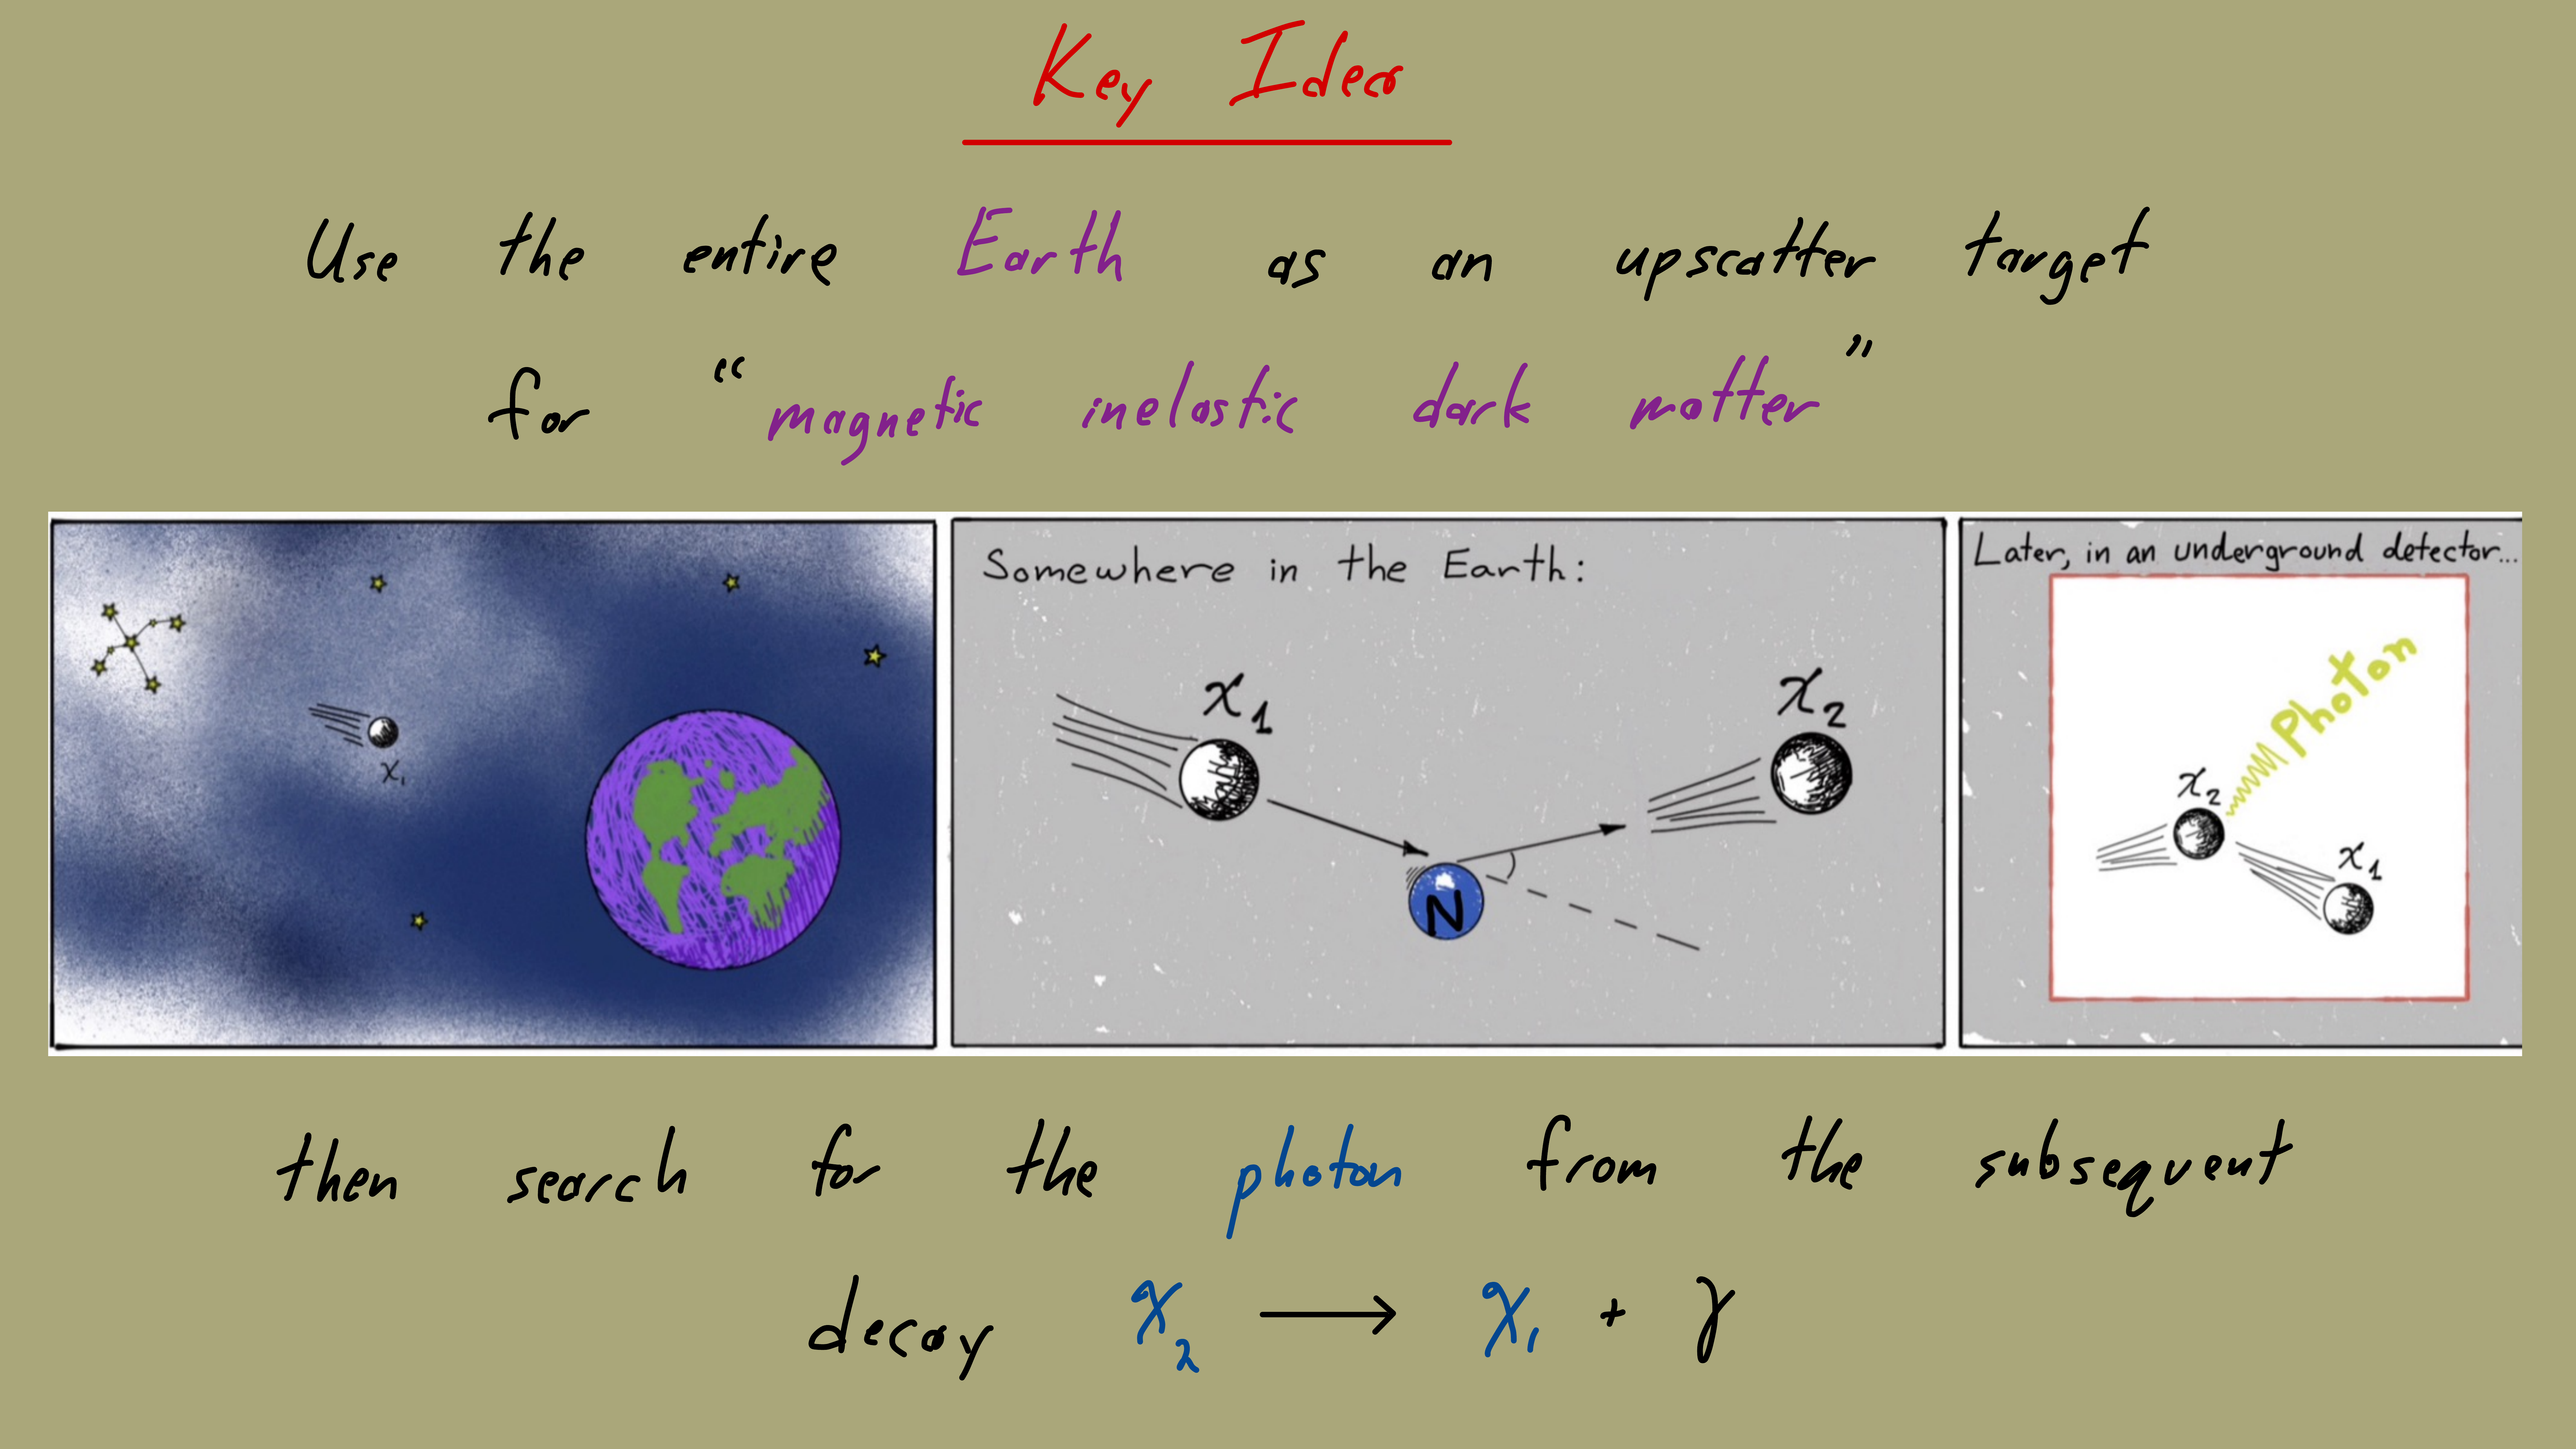 Key Idea
Use the entire Earth as an upscatter target
for "magnetic inelastic dark matter"
χ₁
Somewhere in the Earth:
χ₁
χ₂
N
Later, in an underground detector...
Photon
χ₂
χ₁
then search for the photon from the subsequent
decay χ₂ ⟶ χ₁ + γ